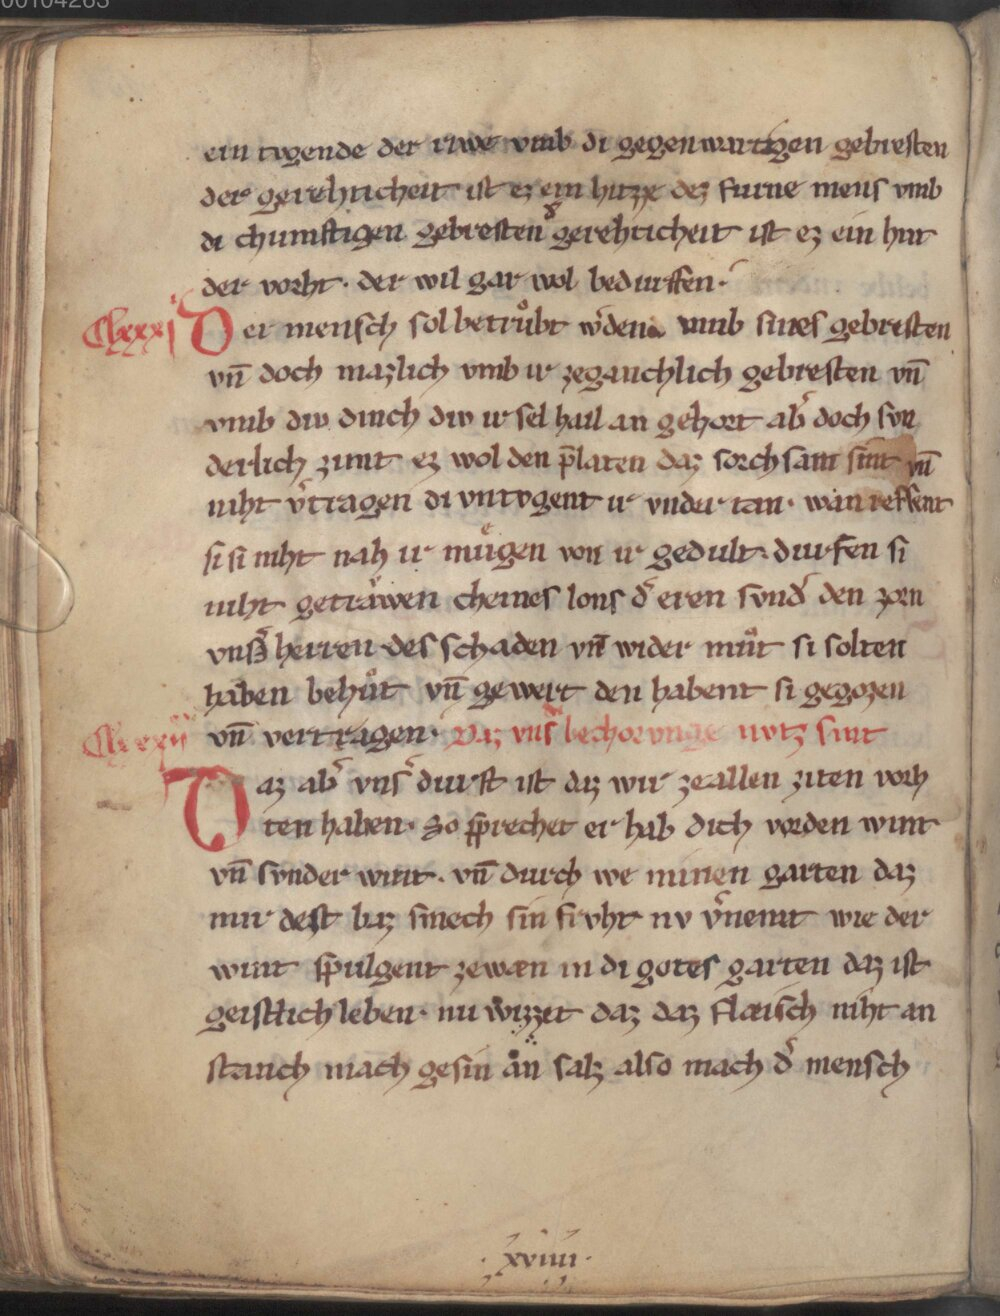 00104263
ein tvgende der riwe vmb di gegenwurtigen gebresten
der gerehticheit ist ez ein hitzze dez furne mens vmb
di chumftigen gebresten d̾ gerehticheit ist ez ein hut
der vorht · der wil gar wol bedurffen ·
Clxxxi Der mensch sol betrůbt w̾den vmb sines gebresten
vn̄ doch mazlich vmb ir zegauchlich gebresten vn̄
vmb div durch div ir sel hail an gehort ab̾ doch svn
derlich zimt ez wol den p̄laten daz sorchsam sint vn̄
niht v̾tragen di vntvgent ir vnder tan · wan reffsent
si si niht nah ir můgen von ir gedult · durfen si
niht getrǎwen cheines lons d̾ eren svnd̾ den zorn
vns̾ herren · des schaden vn̄ wider můt si solten
haben behůt vn̄ gewert den habent si gegozen
Clxxxii vn̄ vertragen · Daz vns̾ bechorvnge nvtz sint
Daz ab̾ vns̾ durft ist daz wir zeallen ziten vorh
ten haben · So sprechet er hab dich vorden wint
vn̄ svnder wint · vn̄ durch we minen garten daz
mir dest baz smech sin fruht nv v̾nemt wie der
wint spulgent zewæn in di gotes garten daz ist
geistlich leben · nu wizzet daz daz flaisch niht an
stanch mach gesin ån salz also mach d̾ mensch
· xviiii ·